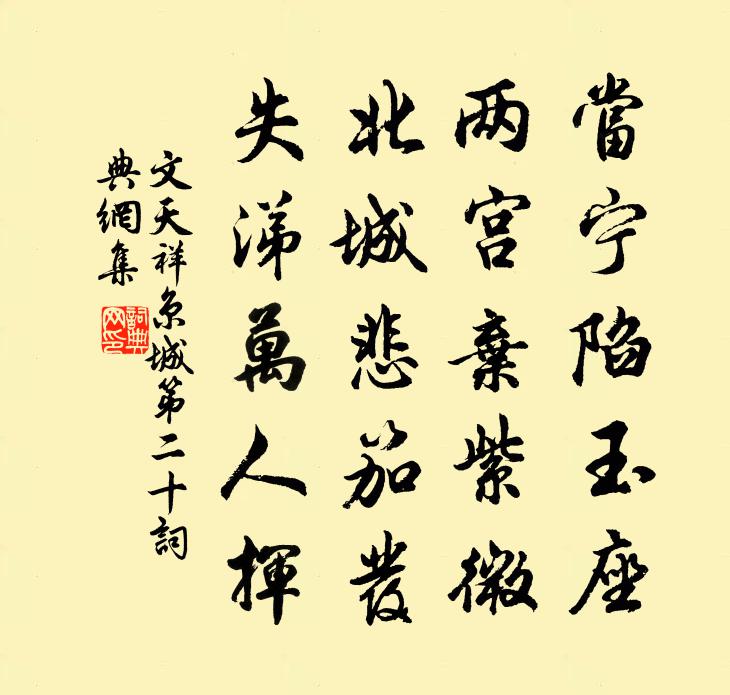 當宁陷玉座
两宫棄紫微
北城悲笳發
失涕萬人揮
文天祥京城第二十詞
典網集
詞典網印